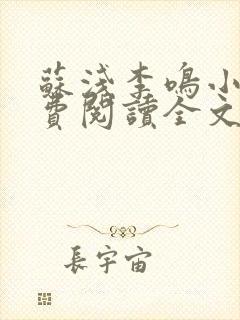 蘇淺李鳴小
費閱讀全文
長宇宙